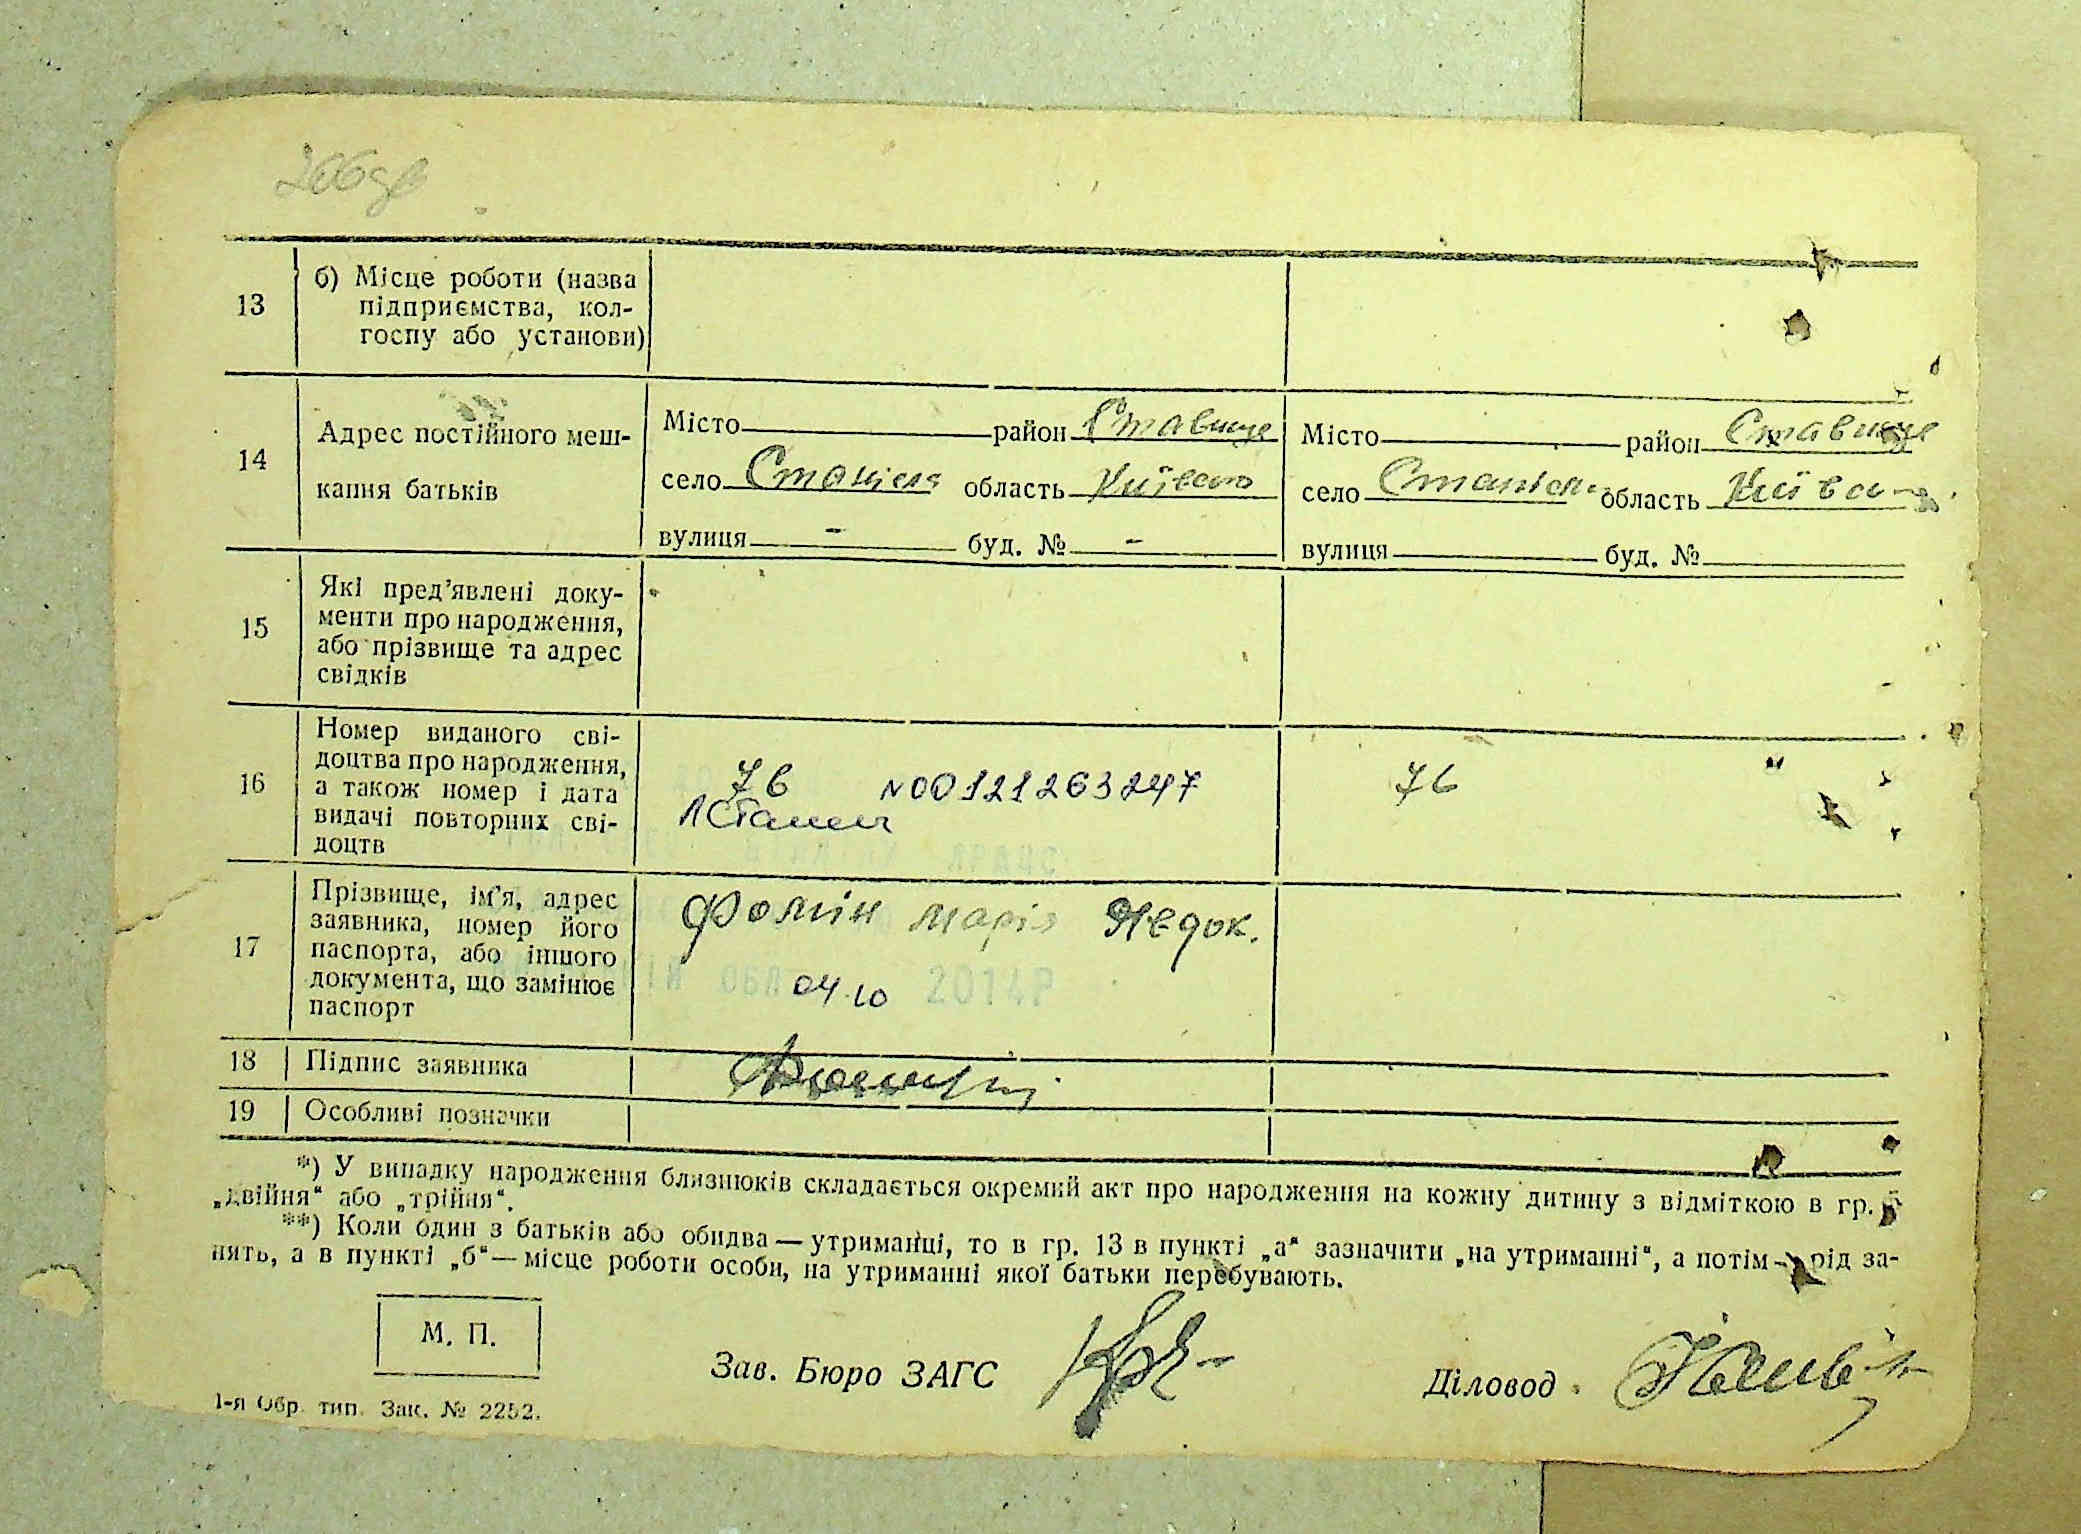 206зв
13
б) Місце роботи (назва
підприємства, кол-
госпу або установи)
14
Адрес постійного меш-
кання батьків
Місто район Ставище
село область Київсько
вулиця - буд. № -
Місто район Ставище
село область Київ
вулиця буд. №
15
Які пред’явлені доку-
менти про народження,
або прізвище та адрес
свідків
16
Номер виданого сві-
доцтва про народження,
а також номер і дата
видачі повторних сві-
доцтв
76 N00121263247
76 "
17
Прізвище, ім’я, адрес
заявника, номер його
паспорта, або іншого
документа, що замінює
паспорт
Фомін марія Недок.
04.10 2014Р
18 Підпис заявника
19 Особливі позначки
*) У випадку народження близнюків складається окремий акт про народження на кожну дитину з відміткою в гр. 5
„двійня“ або „трійня“.
**) Коли один з батьків або обидва — утриманці, то в гр. 13 в пункті „а“ зазначити „на утриманні“, а потім — рід за-
нять, а в пункті „б“ — місце роботи особи, на утриманні якої батьки перебувають.
М. П.
Зав. Бюро ЗАГС
Діловод
1-я Обр. тип. Зак. № 2252.